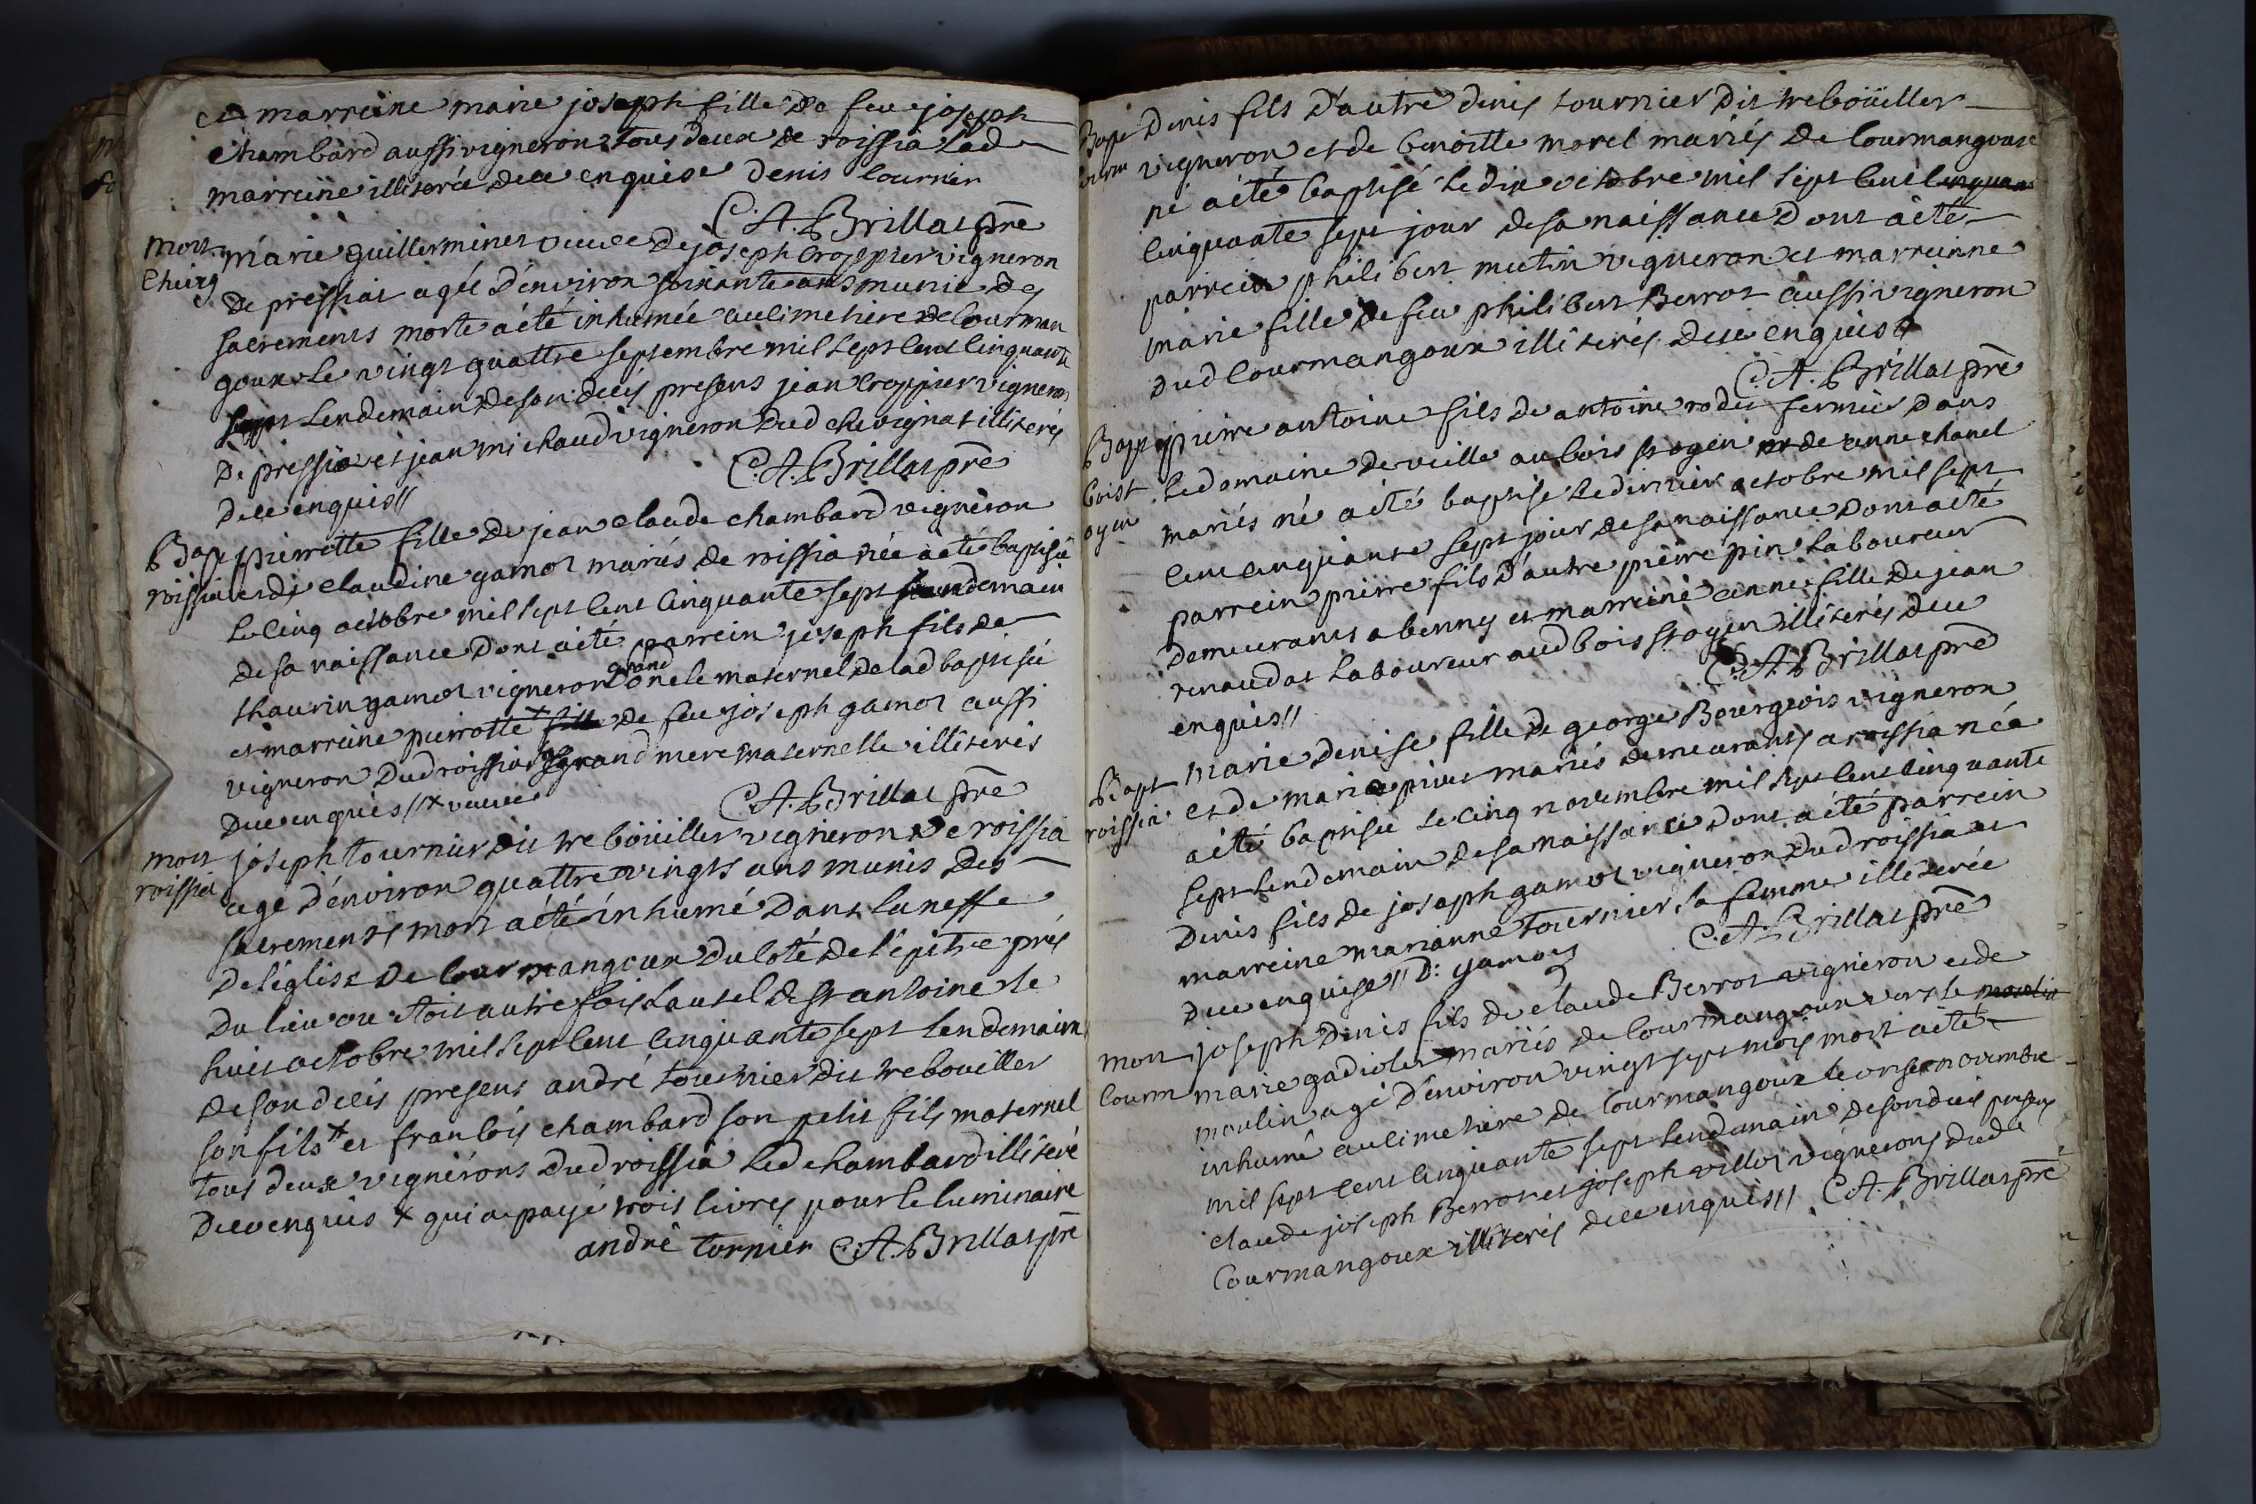 et marreine marie joseph fille de feu joseph
Chambard aussi vigneron tous deux de roissia lad
marreine illiterée de ce enquise Denis tournier
C. A. Brillat prê
mort
Chevig
marie guillerminet veuve de joseph Croppier vigneron
de pressiat agée d'environ soixante ans munie des
sacrements morte a été inhumée au cimetiere de Courman
goux le vingt quattre septembre mil sept cent cinquante
sept lendemain de son décés presens jean Croppier vigneron
de pressia et jean michaud vigneron dud chevignat illiterés
de ce enquis //
C. A. Brillat prê
Bapt
roissia
pierrette fille de jean claude chambard vigneron
et de claudine gamot mariés de roissia née a été baptisée
le cinq octobre mil sept cent cinquante sept lendemain
de sa naissance dont a été parrein joseph fils de
thaurin gamot vigneron grand oncle maternel de lad baptisée
et marreine pierrotte x fille de feu joseph gamot aussi
vigneron dud roissia grand mere maternelle illiterés
de ce enquis // x veuve
C. A. Brillat prê
mort
roissia
joseph tournier dit treboüiller vigneron de roissia
agé d'environ quattre vingts ans munis des
sacrements mort a été inhumé dans la neffe
de l'église de Courmangoux du coté de l'épitre prés
du lieu ou étoit autrefois l'autel de st antoine le
huit octobre mil sept cent cinquante sept lendemain
de son décés presens andré tournier dit trebouiller
son fils x et francois chambard son petit fils maternel
tous deux vignérons dud roissia led chambard illiteré
de ce enquis x qui a payé trois livres pour le luminaire
andrê tornier C. A. Brillat prê
Bapt
courm
Denis fils d'autre denis tournier dit treboüiller
vigneron et de benoitte morel mariés de Courmangoux
né a été baptisé le dix octobre mil sept cent cinquan
cinquante sept jour de sa naissance dont a été
parrein philibert mutin vigneron et marreinne
marie fille de feu philibert Berrot aussi vigneron
dud Courmangoux illiterés de ce enquis //
C. A. Brillat prê
Bapt
boist
oyen
pierre antoine fils de antoine rodet fermier dans
le domaine de veille au bois st ogen et de anne chanel
mariés né a été baptisé le dernier octobre mil sept
cent cinquante sept jour de sa naissance dont a été
parrein pierre fils d'autre pierre pin laboureur
demeurants a benny et marreine anne fille de jean
renaudat laboureur aud bois st ogen illiterés de ce
enquis //
C. A. Brillat prê
Bapt
roissia
marie denise fille de george Bourgeois vigneron
et de marie pivet mariés demeurants a roissia née
a été baptisée le cinq novembre mil sept cent cinquante
sept lendemain de sa naissance dont a été parrein
Denis fils de joseph gamot vigneron dud roissia et
marreine marianne tournier sa femme illiterée
de ce enquise // D: gamot
C. A. Brillat prê
mort
Courm
joseph Denis fils de claude Berrot vigneron et de
marie gadiolet mariés de Courmangoux vers le moulin
moulin agé d'environ vingt sept mois mort a été
inhumé au cimetiere de Courmangoux le onse novembre
mil sept cent cinquante sept lendemain de son décés presens
claude joseph Berrot et joseph villot vignerons dud
Courmangoux illiterés de ce enquis // C. A. Brillat prê